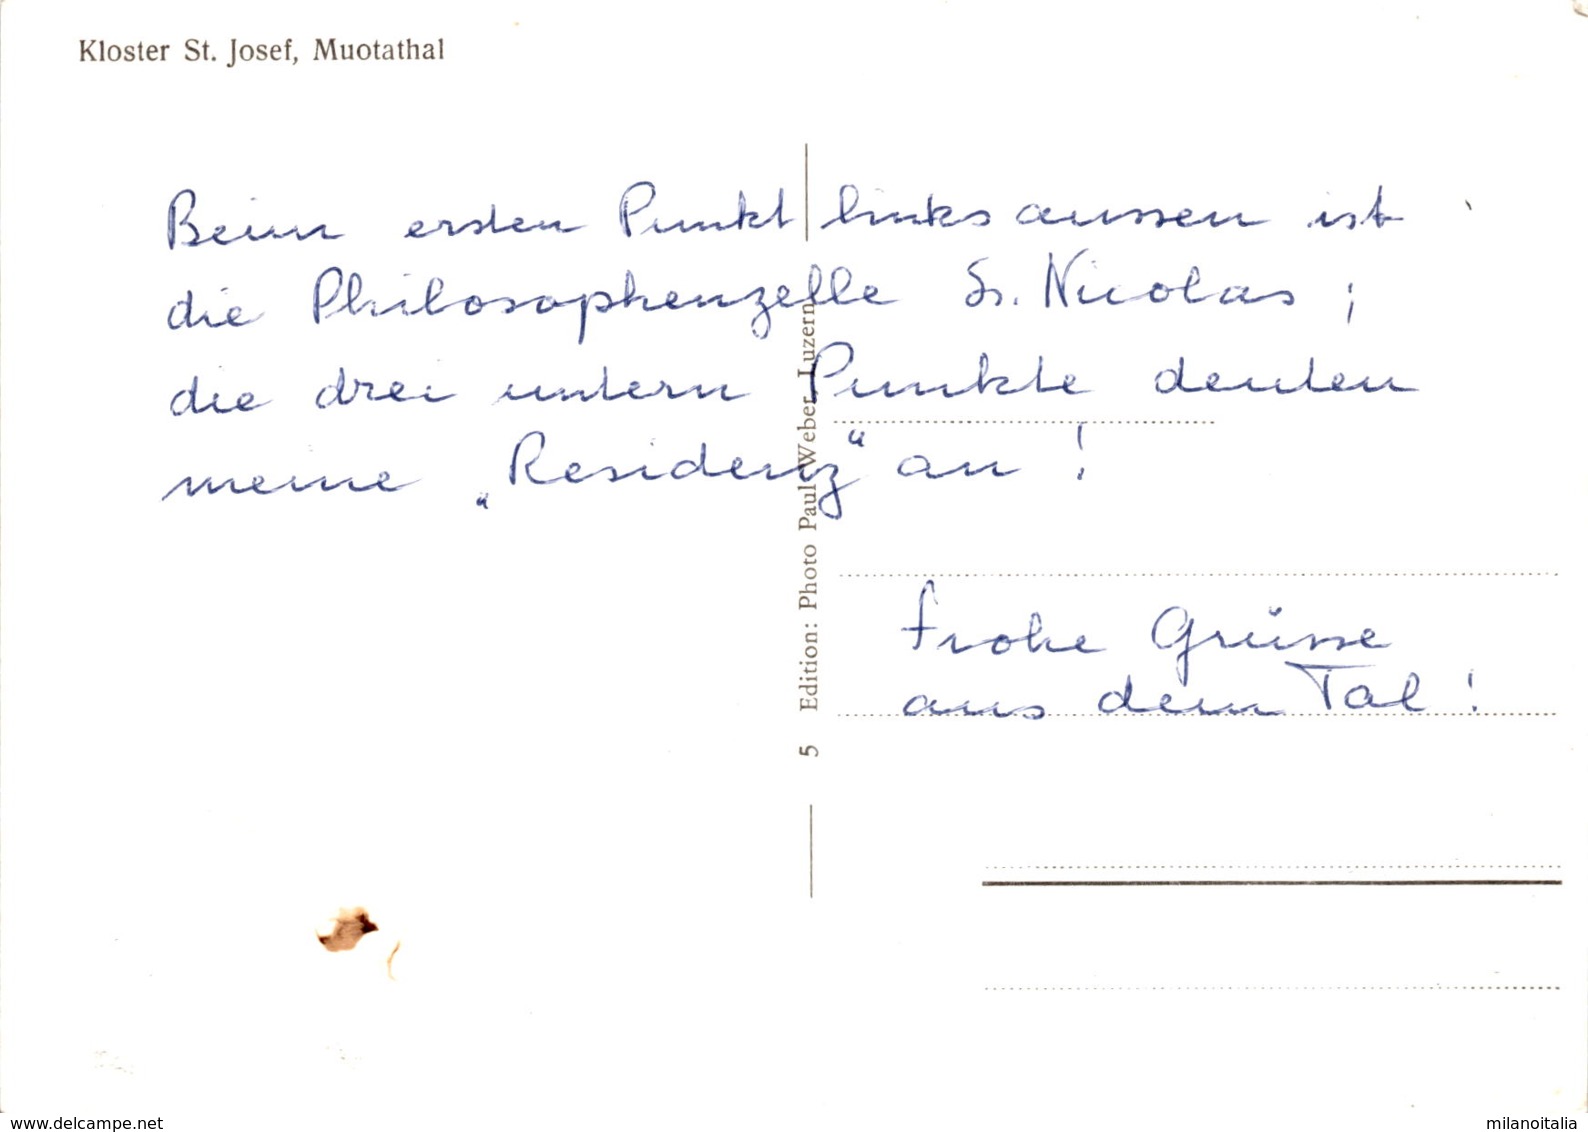 Kloster St. Josef, Muotathal
Beim ersten Punkt links aussen ist
die Philosophenzelle Sr. Nicolas ;
die drei untern Punkte deuten
meine „Residenz“ an !
Frohe Grüsse
aus dem Tal !
5 Edition: Photo Paul Weber, Luzern
www.delcampe.net
milanoitalia